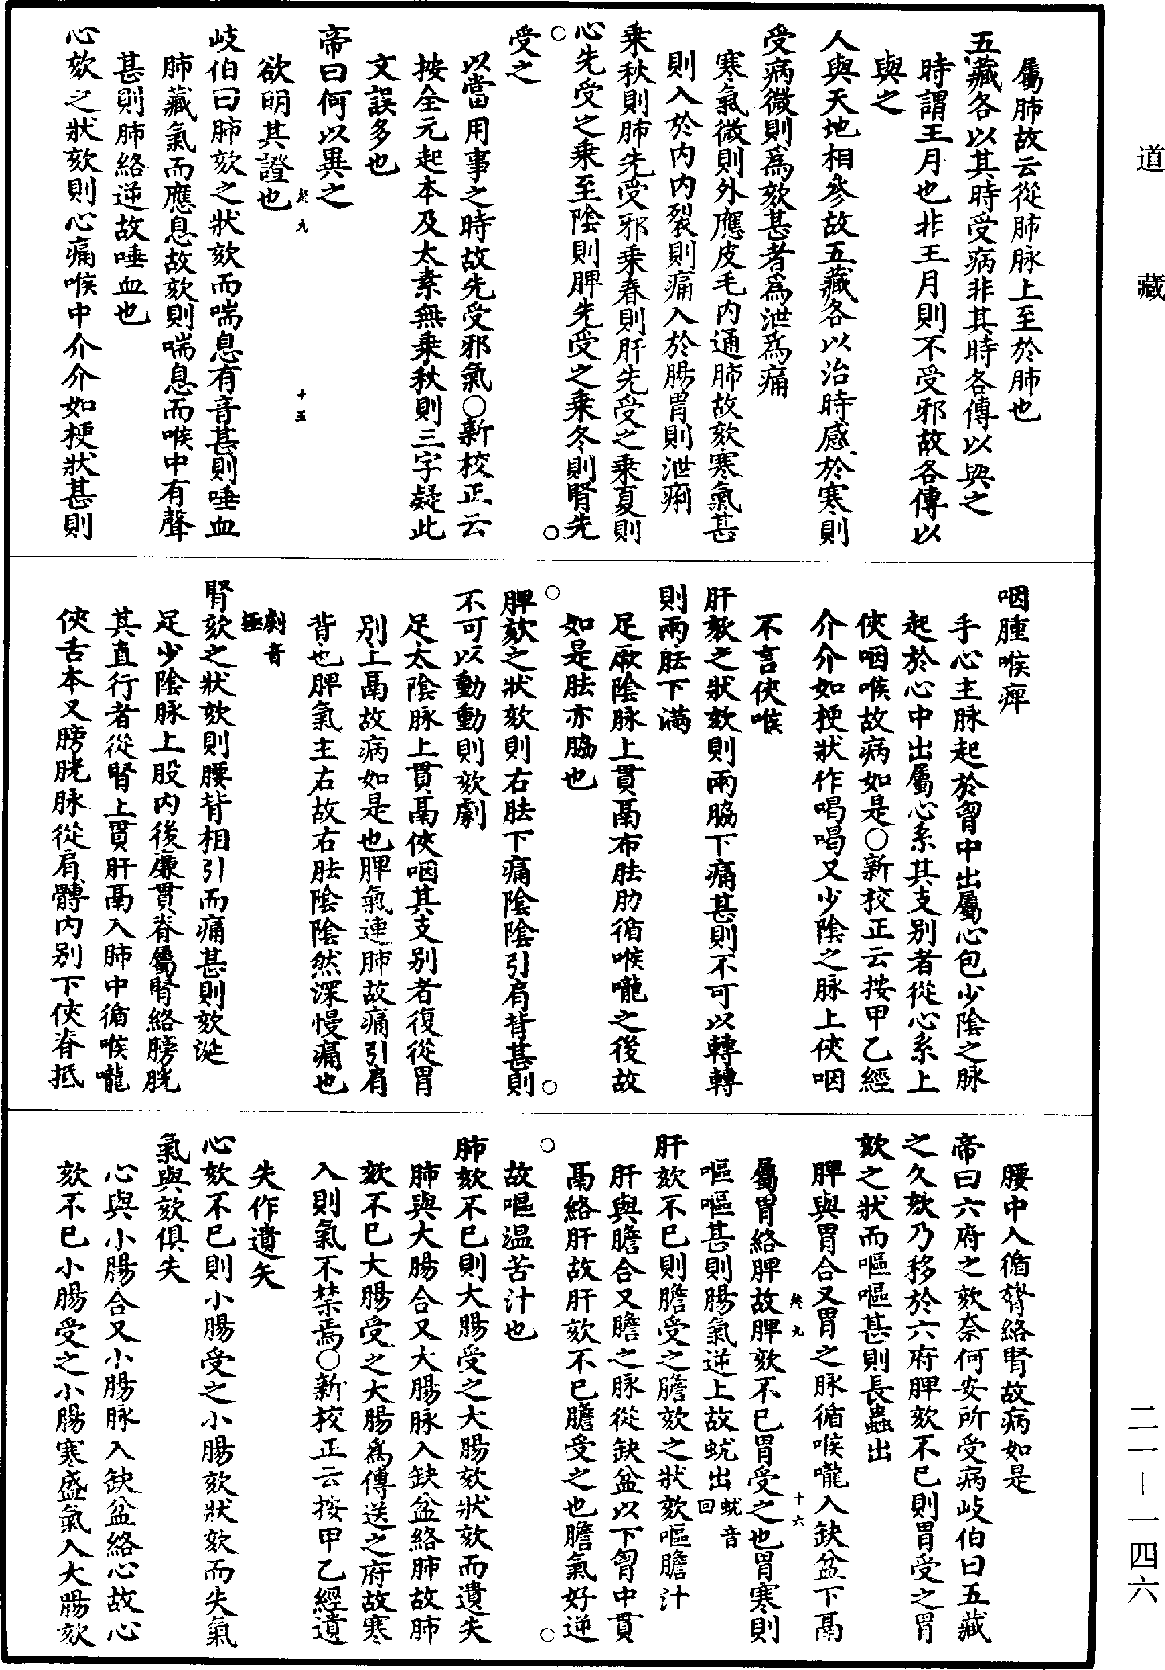 道藏
屬肺故云從肺脉上至於肺也
五藏各以其時受病非其時各傳以與之
時謂王月也非王月則不受邪故各傳以
與之
人與天地相參故五藏各以治時感於寒則
受病微則爲欬甚者爲泄爲痛
寒氣微則外應皮毛內通肺故欬寒氣甚
則入於內內裂則痛入於腸胃則泄痢
乘秋則肺先受邪乘春則肝先受之乘夏則
心先受之乘至陰則脾先受之乘冬則腎先
受之
以當用事之時故先受邪氣○新校正云
按全元起本及太素無乘秋則三字疑此
文誤多也
帝曰何以異之
欲明其證也
終九 十五
岐伯曰肺欬之狀欬而喘息有音甚則唾血
肺藏氣而應息故欬則喘息而喉中有聲
甚則肺絡逆故唾血也
心欬之狀欬則心痛喉中介介如梗狀甚則
咽腫喉痺
手心主脉起於胷中出屬心包少陰之脉
起於心中出屬心系其支别者從心系上
俠咽喉故病如是○新校正云按甲乙經
介介如梗狀作喝喝又少陰之脉上俠咽
不言俠喉
肝欬之狀欬則兩脇下痛甚則不可以轉轉
則兩胠下滿
足厥陰脉上貫鬲布胠肋循喉嚨之後故
如是胠亦脇也
脾欬之狀欬則右胠下痛陰陰引肩背甚則
不可以動動則欬劇
足太陰脉上貫鬲俠咽其支别者復從胃
别上鬲故病如是也脾氣連肺故痛引肩
背也脾氣主右故右胠陰陰然深慢痛也
劇音
極
腎欬之狀欬則腰背相引而痛甚則欬涎
足少陰脉上股內後廉貫脊屬腎絡膀胱
其直行者從腎上貫肝鬲入肺中循喉嚨
俠舌本又膀胱脉從肩髆內别下俠脊抵
腰中入循膂絡腎故病如是
帝曰六府之欬奈何安所受病岐伯曰五藏
之久欬乃移於六府脾欬不已則胃受之胃
欬之狀欬而嘔嘔甚則長蟲出
脾與胃合又胃之脉循喉嚨入缺盆下鬲
屬胃絡脾故脾欬不已胃受之也胃寒則
嘔嘔甚則腸氣逆上故蚘出蚘音
回
終九 十六
肝欬不已則膽受之膽欬之狀欬嘔膽汁
肝與膽合又膽之脉從缺盆以下胷中貫
鬲絡肝故肝欬不已膽受之也膽氣好逆
故嘔温苦汁也
肺欬不已則大腸受之大腸欬狀欬而遺失
肺與大腸合又大腸脉入缺盆絡肺故肺
欬不已大腸受之大腸爲傳送之府故寒
入則氣不禁焉○新校正云按甲乙經遺
失作遺矢
心欬不已則小腸受之小腸欬狀欬而失氣
氣與欬俱失
心與小腸合又小腸脉入缺盆絡心故心
欬不已小腸受之小腸寒盛氣入大腸欬
二一—一四六